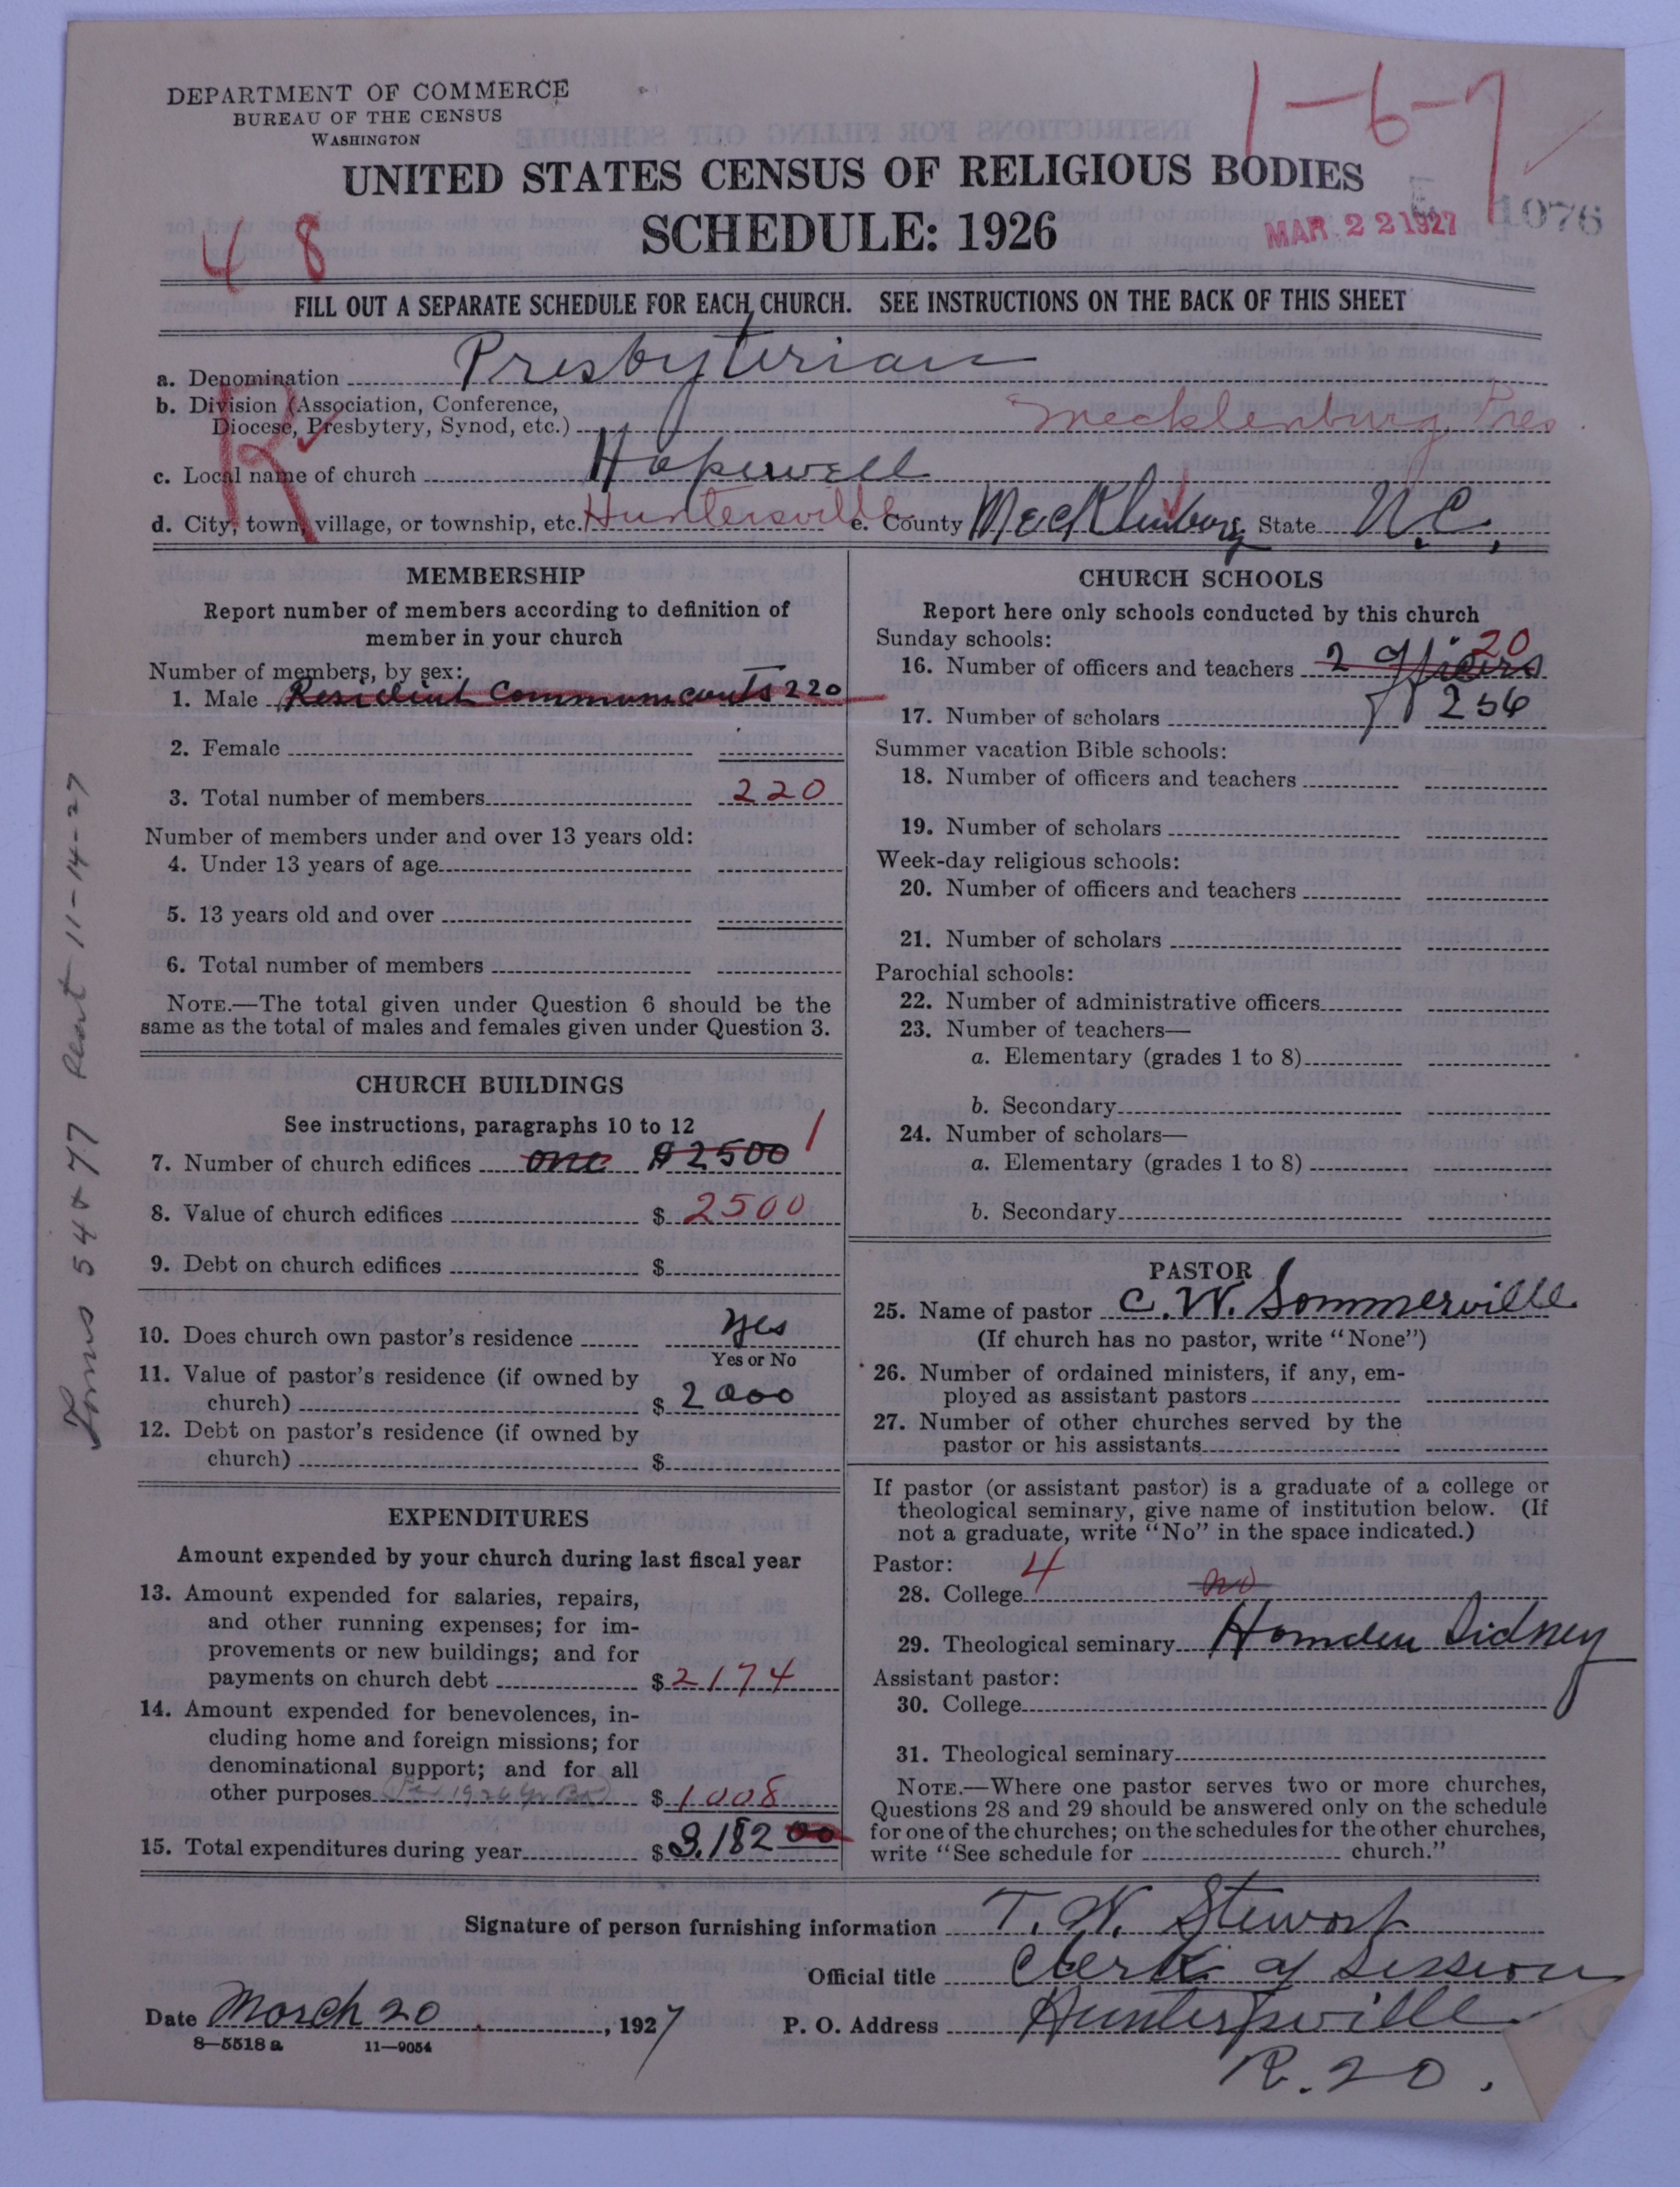 DEPARTMENT OF COMMERCE
BUREAU OF THE CENSUS
WASHINGTON
1-6-7
UNITED STATES CENSUS OF RELIGIOUS BODIES
SCHEDULE: 1926
48
MAR 22 1927
1076
FILL OUT A SEPARATE SCHEDULE FOR EACH CHURCH. SEE INSTRUCTIONS ON THE BACK OF THIS SHEET
a. Denomination Presbyterian
b. Division (Association, Conference,
Diocese, Presbytery, Synod, etc.) Mecklenburg Pres
R
c. Local name of church Hopewell
d. City, town, village, or township, etc. Huntersville e. County Mecklenburg State N.C.
MEMBERSHIP
Report number of members according to definition of
member in your church
Number of members, by sex:
1. Male Resident Communicants 220
2. Female
3. Total number of members 220
Number of members under and over 13 years old:
4. Under 13 years of age
5. 13 years old and over
6. Total number of members
NOTE.—The total given under Question 6 should be the
same as the total of males and females given under Question 3.
CHURCH BUILDINGS
See instructions, paragraphs 10 to 12
7. Number of church edifices one $2500 1
8. Value of church edifices $ 2500
9. Debt on church edifices $
10. Does church own pastor's residence yes
Yes or No
11. Value of pastor's residence (if owned by
church) $ 2000
12. Debt on pastor's residence (if owned by
church) $
EXPENDITURES
Amount expended by your church during last fiscal year
13. Amount expended for salaries, repairs,
and other running expenses; for im-
provements or new buildings; and for
payments on church debt $ 2174
14. Amount expended for benevolences, in-
cluding home and foreign missions; for
denominational support; and for all
other purposes $ 1008
15. Total expenditures during year $ 3,182 00
CHURCH SCHOOLS
Report here only schools conducted by this church
Sunday schools:
16. Number of officers and teachers 2 officers 20
17. Number of scholars 256
Summer vacation Bible schools:
18. Number of officers and teachers
19. Number of scholars
Week-day religious schools:
20. Number of officers and teachers
21. Number of scholars
Parochial schools:
22. Number of administrative officers
23. Number of teachers—
a. Elementary (grades 1 to 8)
b. Secondary
24. Number of scholars—
a. Elementary (grades 1 to 8)
b. Secondary
PASTOR
25. Name of pastor C. W. Sommerville
(If church has no pastor, write "None")
26. Number of ordained ministers, if any, em-
ployed as assistant pastors
27. Number of other churches served by the
pastor or his assistants
If pastor (or assistant pastor) is a graduate of a college or
theological seminary, give name of institution below. (If
not a graduate, write "No" in the space indicated.)
Pastor: 4
28. College no
29. Theological seminary Hamden Sidney
Assistant pastor:
30. College
31. Theological seminary
NOTE.—Where one pastor serves two or more churches,
Questions 28 and 29 should be answered only on the schedule
for one of the churches; on the schedules for the other churches,
write "See schedule for church."
Signature of person furnishing information T. W. Stewart
Official title Clerk of Session
Date March 20, 1927 P. O. Address Huntersville
R. 20.
8—5518 a 11—9054
54877 11-14-27